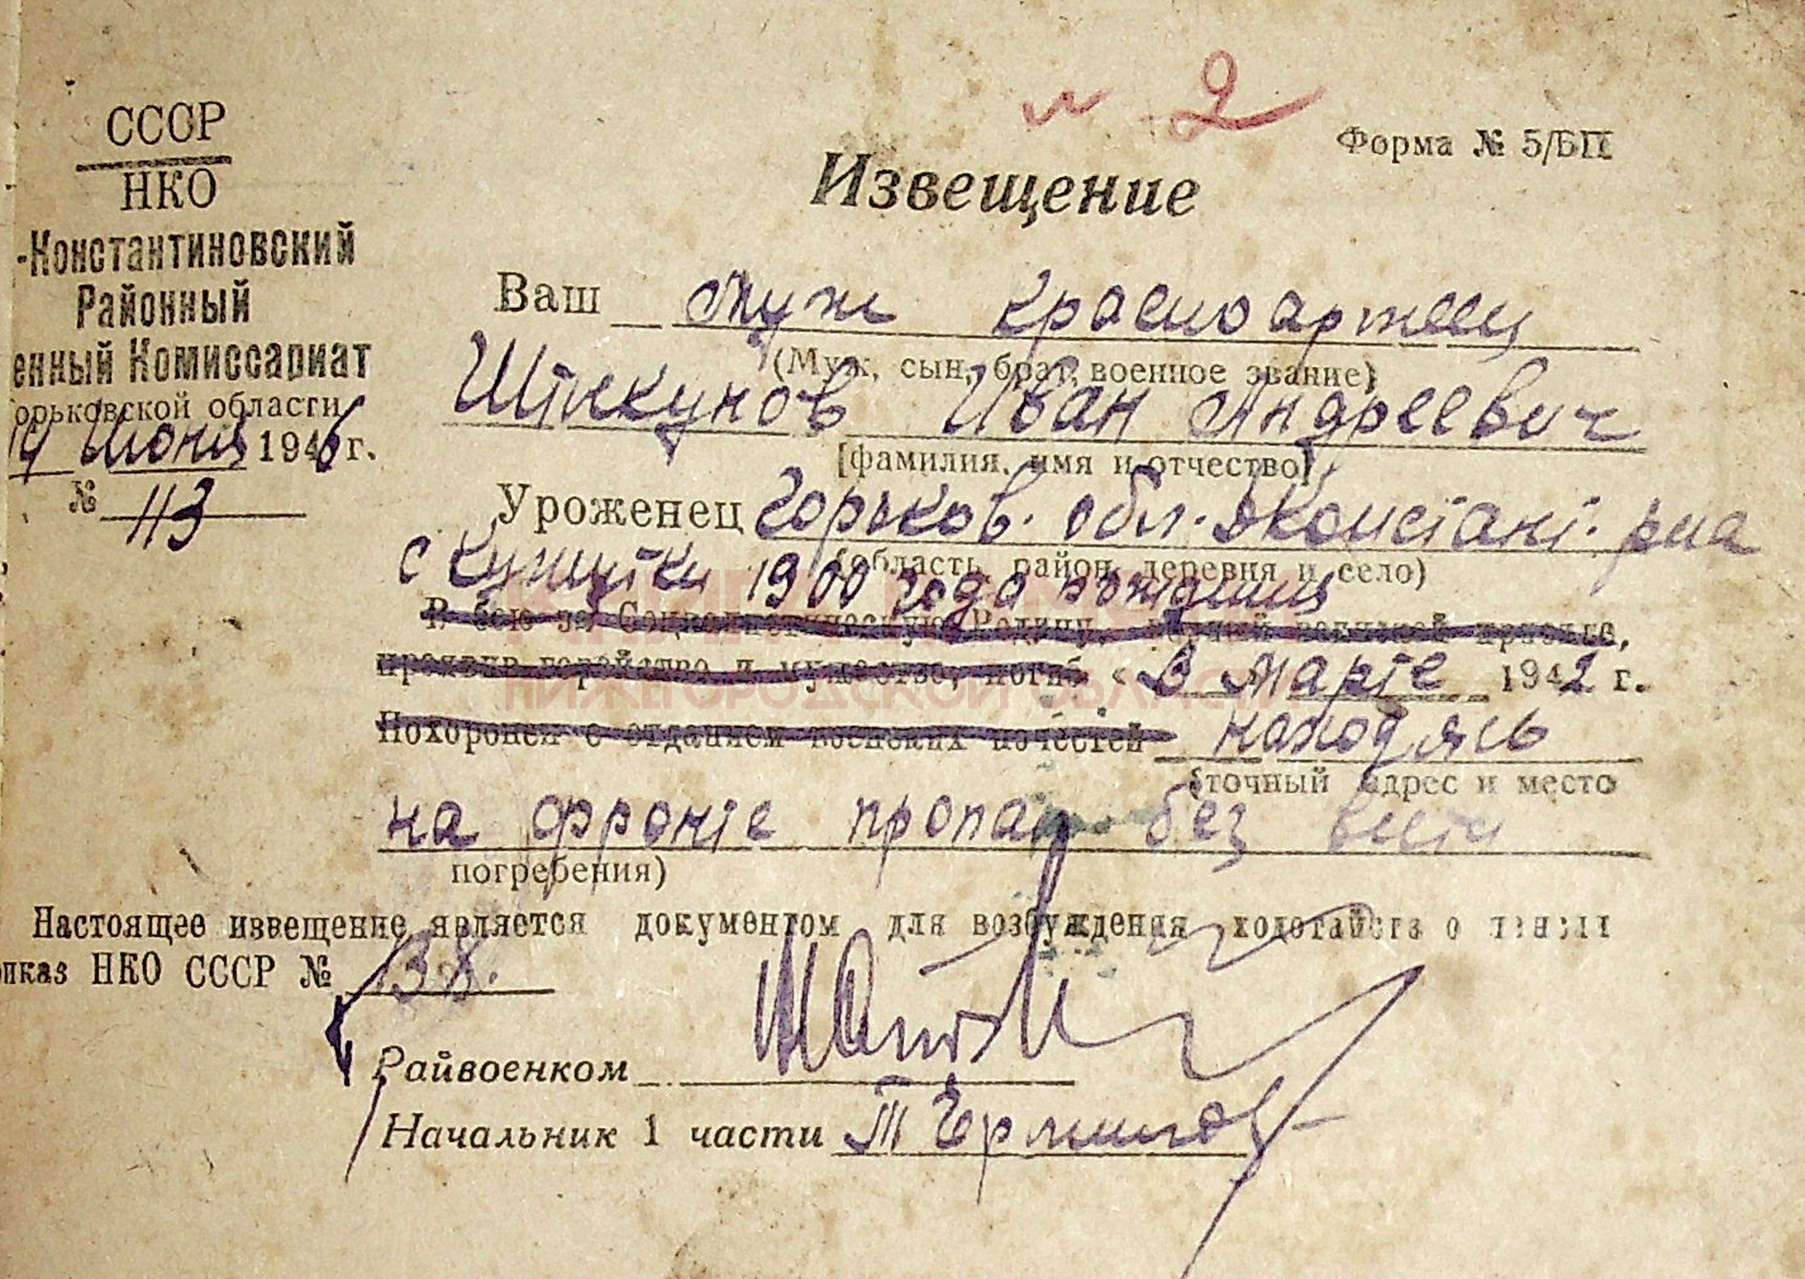 и 2
Форма № 5/БП
СССР
НКО
-Константиновский
Районный
енный Комиссариат
орьковской области
19 Июня 1946 г.
№ 113
Извещение
Ваш муж красноармеец
(Муж, сын, брат, военное звание)
Штукунов Иван Андреевич
[фамилия, имя и отчество]
Уроженец Горьков. обл. Дконстант. рна
(область, район, деревня и село)
с 1900 года рождения
В бою за Социалистическую Родину, верный воинской присяге,
проявив геройство и мужество, погиб « В марте 1942 г.
Похоронен с отданием воинских почестей находясь
(точный адрес и место
на фронте пропал без вести
погребения)
Настоящее извещение является документом для возбуждения ходатайств о пенсии
риказ НКО СССР № 138.
Райвоенком
Начальник 1 части
НИЖЕГОРОДСКОЙ ОБЛАСТИ